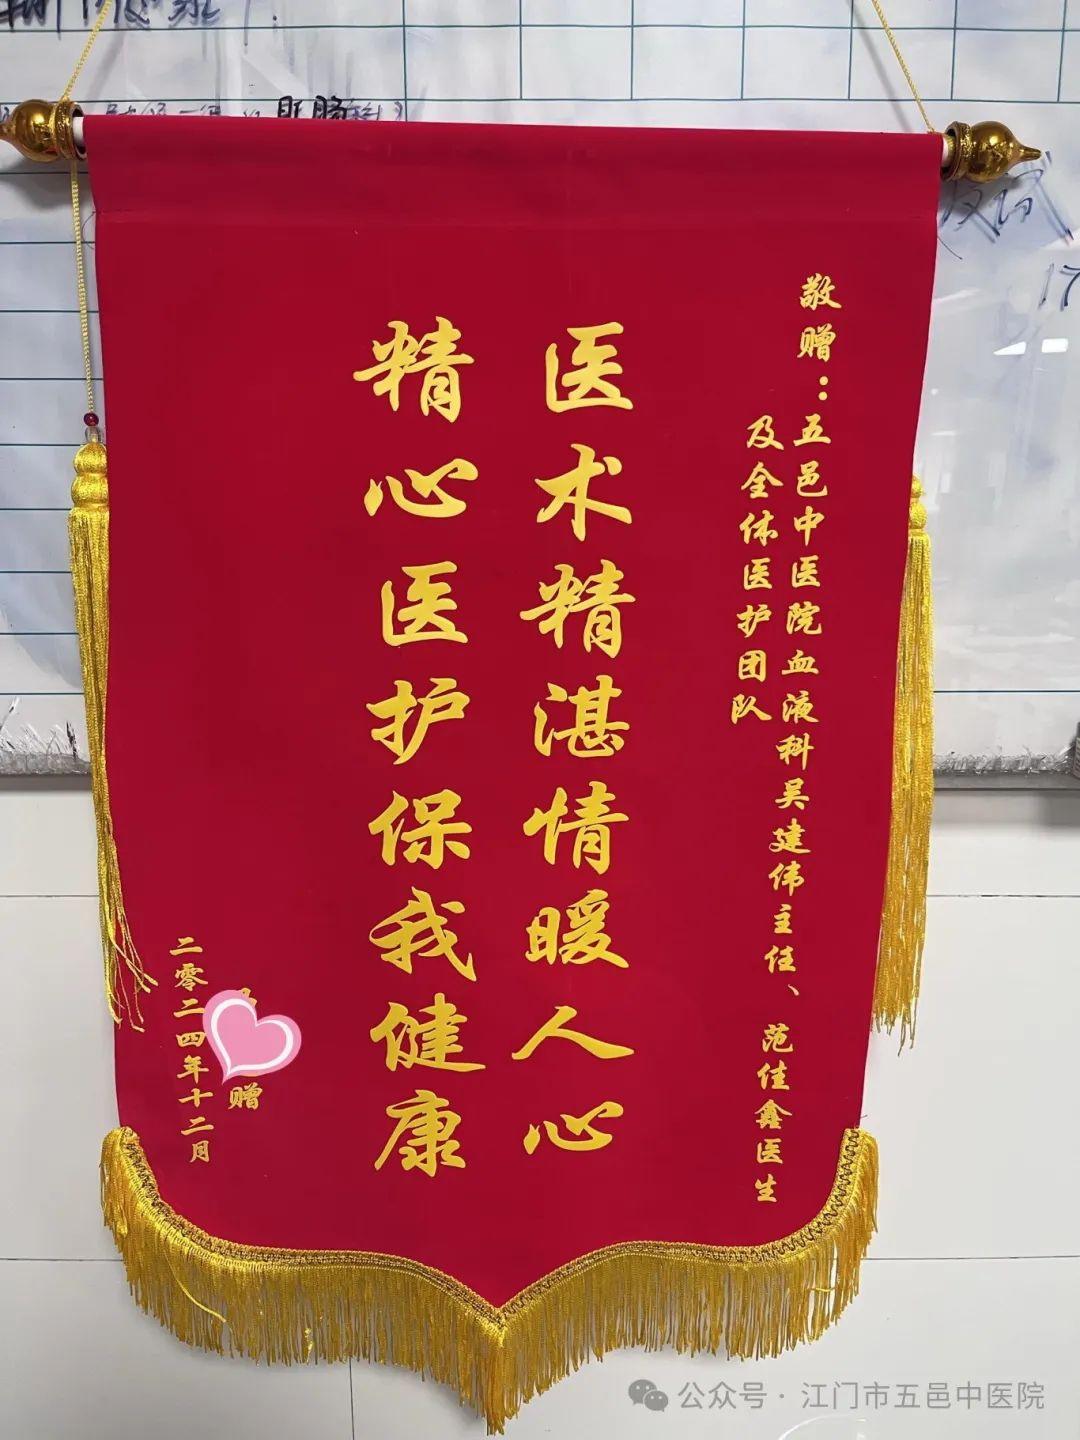 敬赠：五邑中医院血液科吴建伟主任、范佳鑫医生
及全体医护团队
医术精湛情暖人心
精心医护保我健康
赠
二零二四年十二月
公众号·江门市五邑中医院